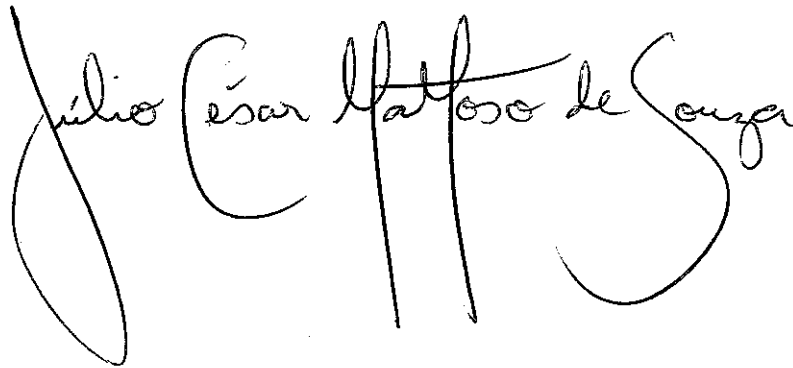 Júlio César Mattoso de Souza